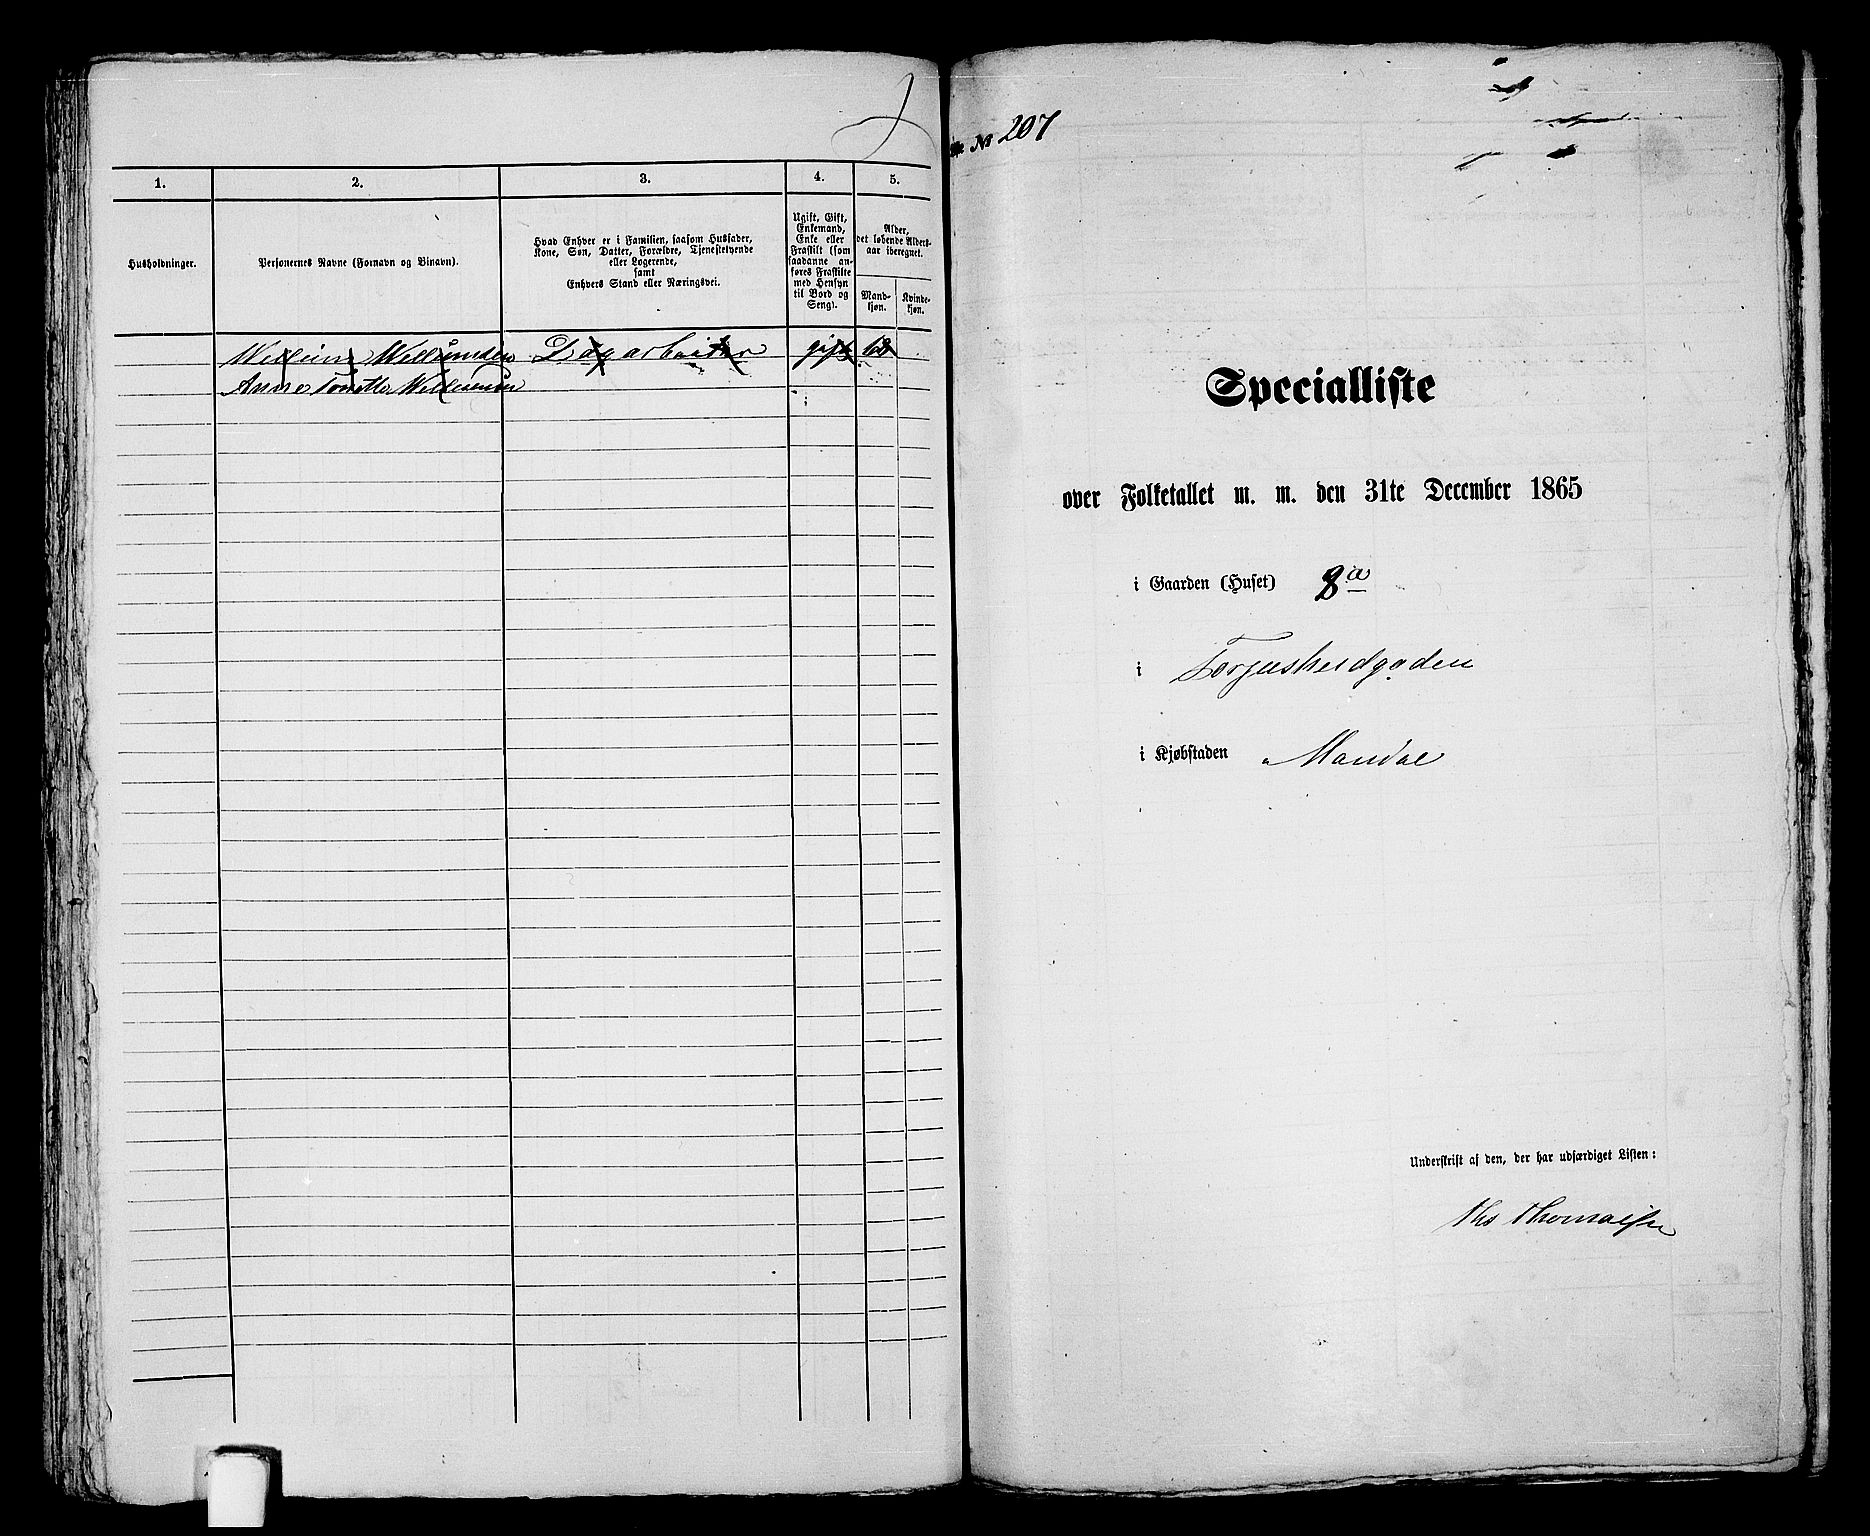 1. 2. 3. 4. 5.
Husholdninger.
Personernes Navne (Fornavn og Binavn).
Hvad Enhver er i Familien, saasom Husfader,
Kone, Søn, Datter, Forældre, Tjenestetyende
eller Logerende,
samt
Enhvers Stand eller Næringsvei.
Ugift, Gift,
Enkemand,
Enke eller
Fraskilt (som
saadanne an-
føres Fraskilte
med Hensyn
til Bord og
Seng).
Alder,
det løbende Alders-
aar iberegnet.
Mand-
kjøn.
Kvinde-
kjøn.
Dagarbeider gift
Anne
№ 207
Specialliste
over Folketallet m. m. den 31te December 1865
i Gaarden (Huset) 8a
i Torjusheidgaden
i Kjøbstaden Mandal
Underskrift af den, der har udfærdiget Listen:
Ths Thomassen